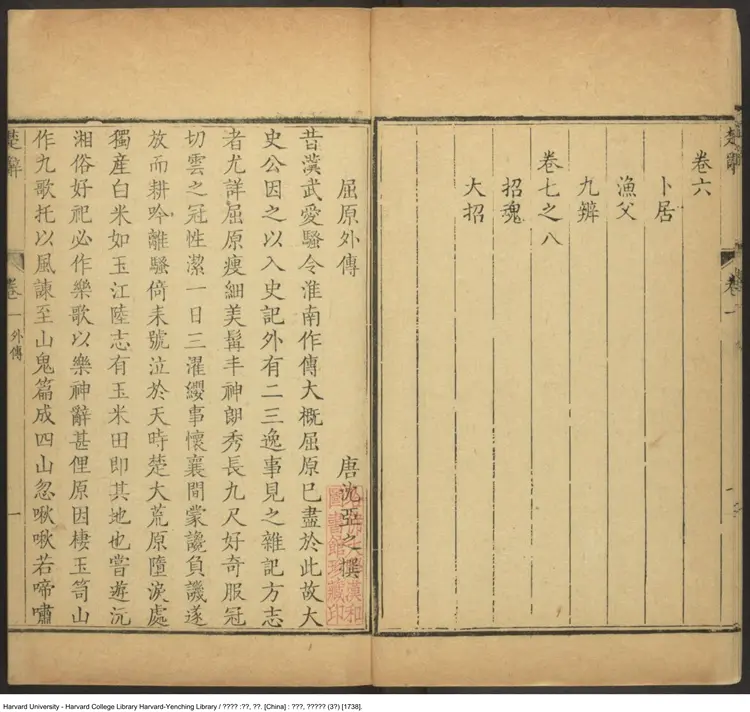 卷六
卜居
漁父
九辨
卷七之八
招魂
大招
屈原外傳
唐沈亞之撰
昔漢武愛騷令淮南作傳大槪屈原已盡於此故大
史公因之以入史記外有二三逸事見之雜記方志
者尤詳屈原瘦細美髯丰神朗秀長九尺好奇服冠
切雲之冠性潔一日三濯纓事懷襄間蒙讒負譏遂
放而耕吟離騷倚耒號泣於天時楚大荒原墮淚處
獨産白米如玉江陸志有玉米田卽其地也嘗遊沅
湘俗好祀必作樂歌以樂神辭甚俚原因棲玉笥山
作九歌托以風諫至山鬼篇成四山忽啾啾若啼嘯
楚辭
卷一
外傳
一
Harvard University - Harvard College Library Harvard-Yenching Library / ???? :??, ??. [China] : ???, ????? (3?) [1738].